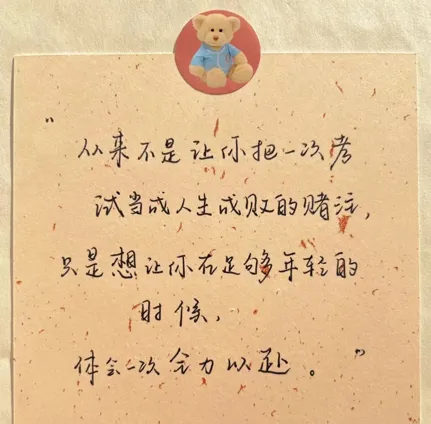 “
从来不是让你把一次考
试当成人生成败的赌注,
只是想让你在足够年轻的
时候,
体会一次全力以赴。”